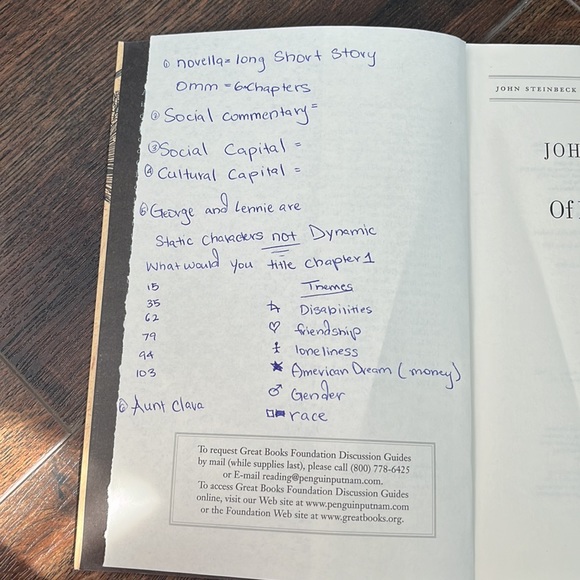 ① novella= long Short Story
Omm =6 Chapters
② Social commentary =
③ Social Capital =
④ Cultural Capital =
⑤ George and Lennie are
Static Characters not Dynamic
What would you title chapter 1
15
35
62
79
94
103
Themes
Disabilities
friendship
loneliness
American Dream (money)
Gender
race
⑥ Aunt Clara
To request Great Books Foundation Discussion Guides
by mail (while supplies last), please call (800) 778-6425
or E-mail reading@penguinputnam.com.
To access Great Books Foundation Discussion Guides
online, visit our Web site at www.penguinputnam.com
or the Foundation Web site at www.greatbooks.org.
JOHN STEINBECK
JOH
Of